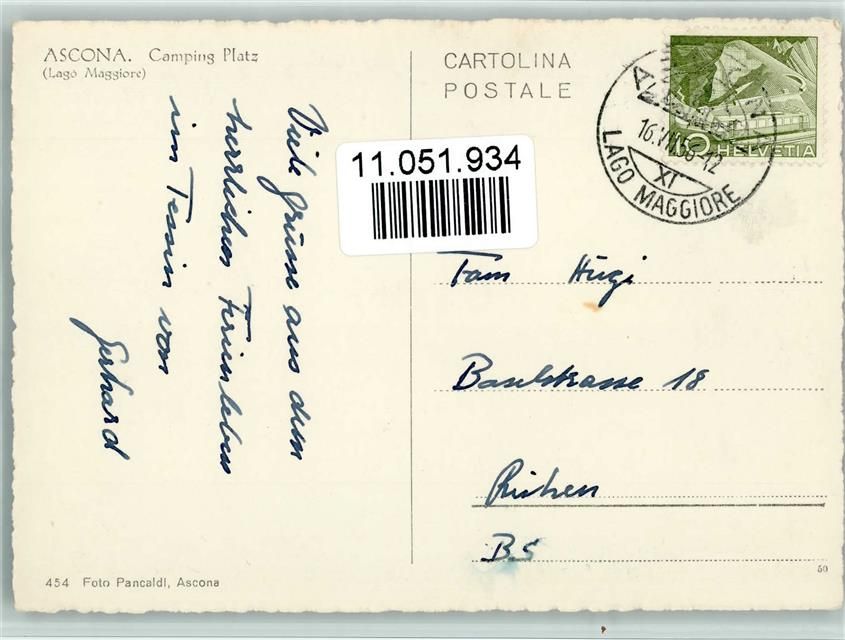 ASCONA. Camping Platz
(Lago Maggiore)
CARTOLINA
POSTALE
HELVETIA
LAGO MAGGIORE
XI
11.051.934
Viele Grüsse aus dem
herrlichen Ferienleben
im Tessin von
Gerhard
Fam Hügi
Baselstrasse 18
Riehen
BS
454 Foto Pancaldi, Ascona
50